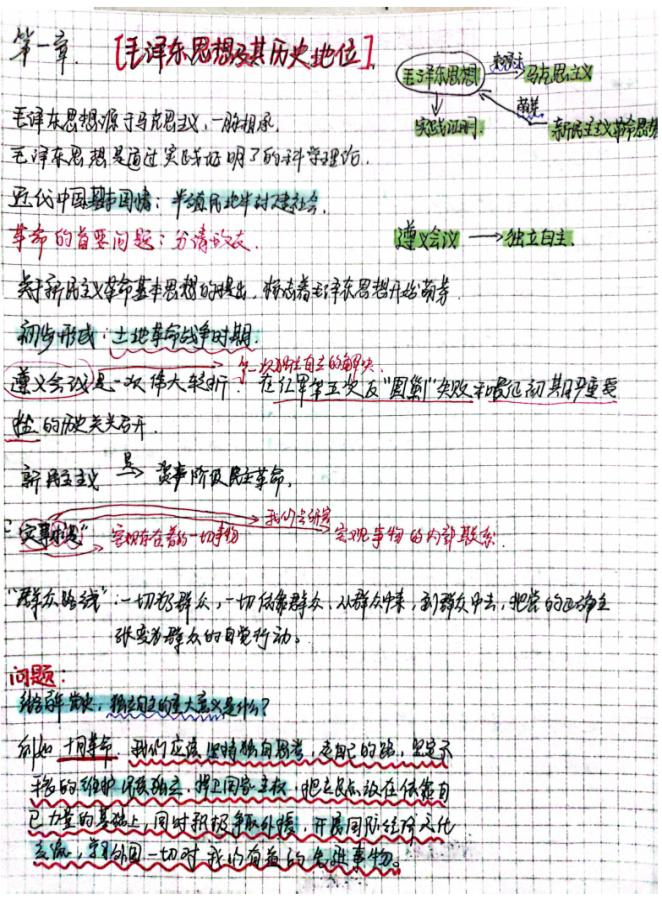 第一章 [毛泽东思想及其历史地位].
毛泽东思想 马克思主义
萌芽
实践证明 新民主主义革命思想
毛泽东思想源于马克思主义,一脉相承.
毛泽东思想是通过实践证明了的科学理论.
近代中国基本国情:半殖民地半封建社会.
革命的首要问题:分清敌友.
遵义会议 → 独立自主.
关于新民主主义革命基本思想的提出,标志着毛泽东思想开始萌芽.
初步形成:土地革命战争时期.
第一次独立自主的解决.
遵义会议是一次伟大转折:在红军第五次反"围剿"失败和长征初期严重受
挫的历史关头召开.
新民主主义 是→ 资产阶级民主革命.
我们去研究
"实事求是" 客观存在着的一切事物 客观事物的内部联系.
"群众路线":一切为了群众,一切依靠群众,从群众中来,到群众中去,把党的正确主
张变为群众的自觉行动。
问题:
结合百年党史,独立自主的重大意义是什么?
例如 十月革命.我们应该坚持独自思考,走自己的路,坚定不
移的维护民族独立,捍卫国家主权,把立足点放在依靠自
己力量的基础上,同时积极争取外援,开展国际经济文化
交流,学习外国一切对我们有益的先进事物。